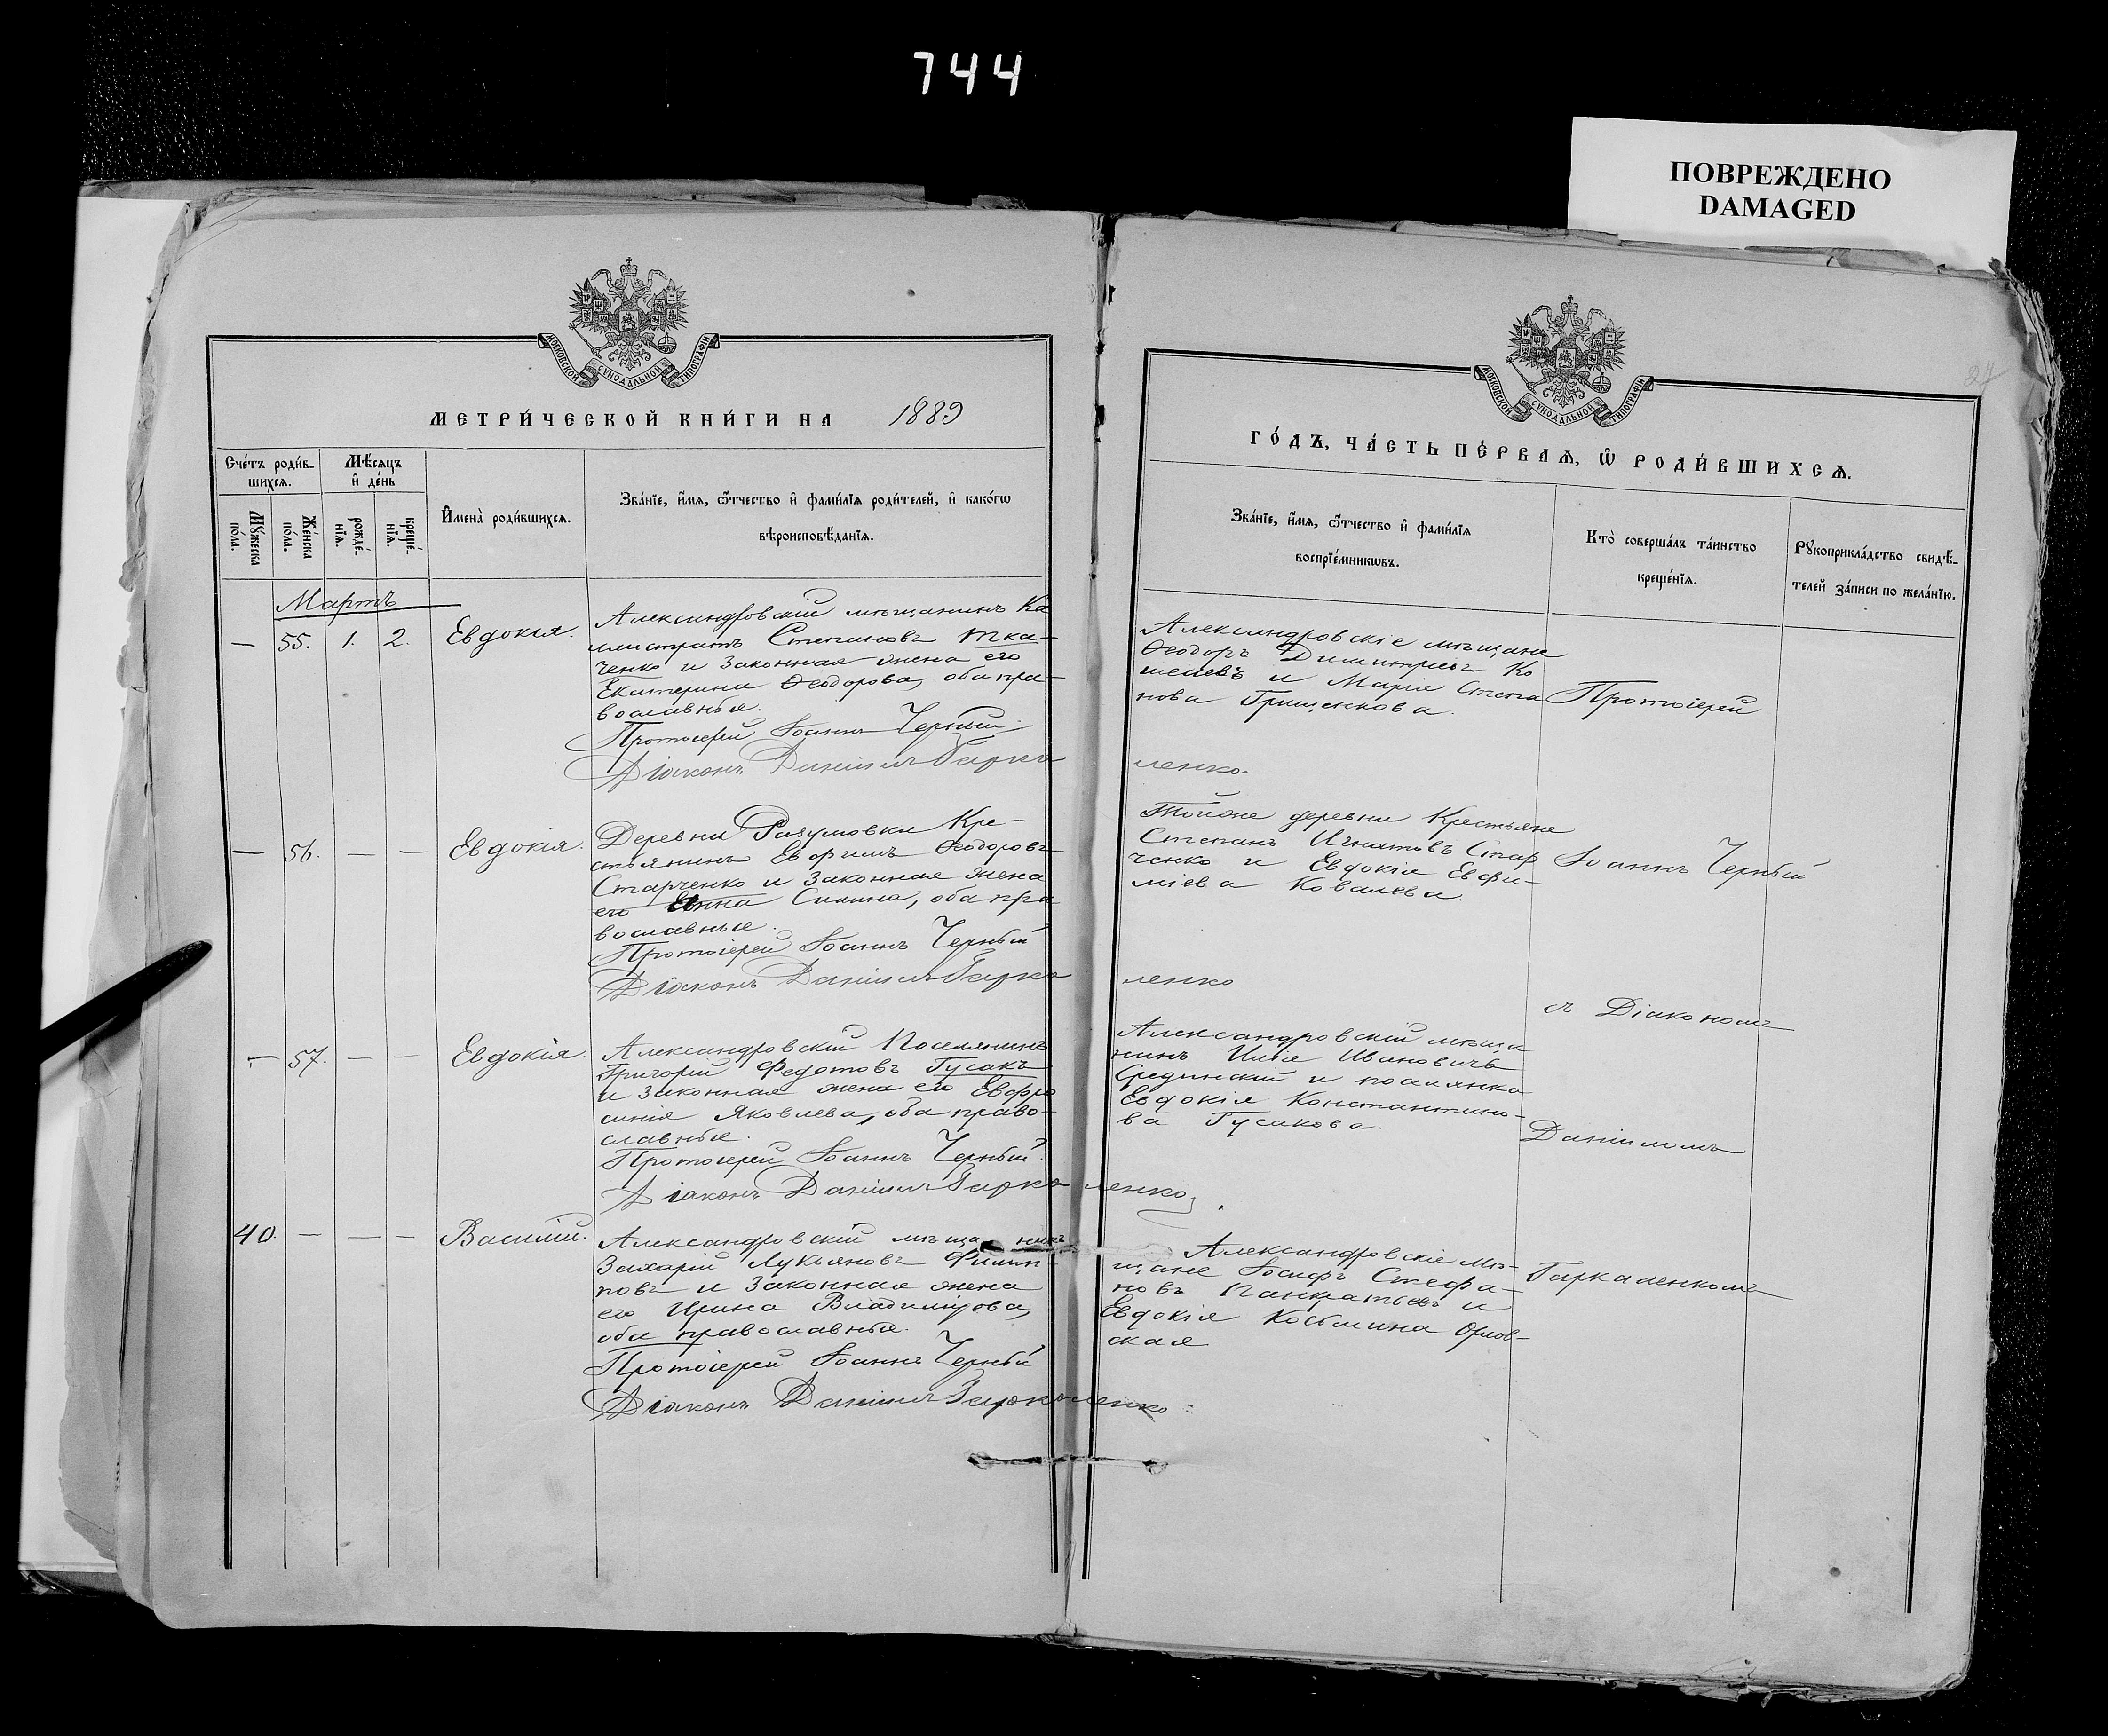 744
ПОВРЕЖДЕНО
DAMAGED
МОСКОВСКОЙ СѴНОДАЛЬНОЙ ТИПОГРАФІИ
МЕТРИ́ЧЕСКОЙ КНИ́ГИ НА 1889
Сче́тъ роди́в-
шихсѧ.
Мѣ́сѧцъ
и҆ де́нь
Мꙋ́жеска
по́ла.
Же́нска
по́ла.
рожде́-
нїѧ.
креще́-
нїѧ.
И҆мена̀ роди́вшихсѧ.
Зва́нїе, и҆́мѧ, ѻ҆́тчество и҆ фамилїѧ роди́телей, и҆ како́гѡ
вѣроисповѣ́данїѧ.
Мартъ
— 55. 1. 2. Евдокія.
Александровскій мѣщанинъ Ка
листратъ Степановъ Тка-
ченко и законная жена его
Екатерина Ѳеодорова, оба пра-
вославные.
Протоіерей Іоаннъ Черный
Діаконъ Даніилъ Гарка
— 56. — — Евдокія.
Деревни Разумовки Кре-
стьянинъ Евфимъ Ѳеодоровъ
Старченко и законная жена
его Анна Силина, оба пра
вославные.
Протоіерей Іоаннъ Черный
Діаконъ Даніилъ Гарка
— 57. — — Евдокія.
Александровскій Поселянинъ
Григорій Федотовъ Гусакъ
и законная жена его Евфро
синія Яковлева, оба право-
славные.
Протоіерей Іоаннъ Черный.
Діаконъ Даніилъ Гарка
40. — — — Василій.
Александровскій мѣщанинъ
Захарій Лукьяновъ Филип-
повъ и законная жена
его Ирина Владимірова,
оба православные.
Протоіерей Іоаннъ Черный
Діаконъ Даніилъ Гаркаленко
27
МОСКОВСКОЙ СѴНОДАЛЬНОЙ ТИПОГРАФІИ
ГО́ДЪ, ЧА́СТЬ ПЕ́РВАѦ, Ѡ҆ РОДИ́ВШИХСѦ.
Зва́нїе, и҆́мѧ, ѻ҆́тчество и҆ фами́лїѧ
воспрїе́мникѡвъ.
Кто̀ соверша́лъ та́инство
креще́нїѧ.
Рꙋкоприкла́дство свидѣ́-
телей за́писи по жела́нїю.
Александровскіе мѣщане
Ѳеодоръ Димитріевъ Ко
шелевъ и Марія Степа
нова Грищенкова.
Протоіерей
ленко.
Тойже деревни Крестьяне
Степанъ Игнатовъ Стар
ченко и Евдокія Евфи-
міева Ковалева.
Іоаннъ Черный
ленко
съ Діакономъ
Александровскій мѣща
нинъ Илія Ивановичъ
Срединскій и поселянка
Евдокія Константино-
ва Гусакова.
Даніиломъ
ленко
Александровскіе мѣ-
щане Іосифъ Стефа-
новъ Панкратьевъ и
Евдокія Космина Орлов-
ская
Гаркаленкомъ